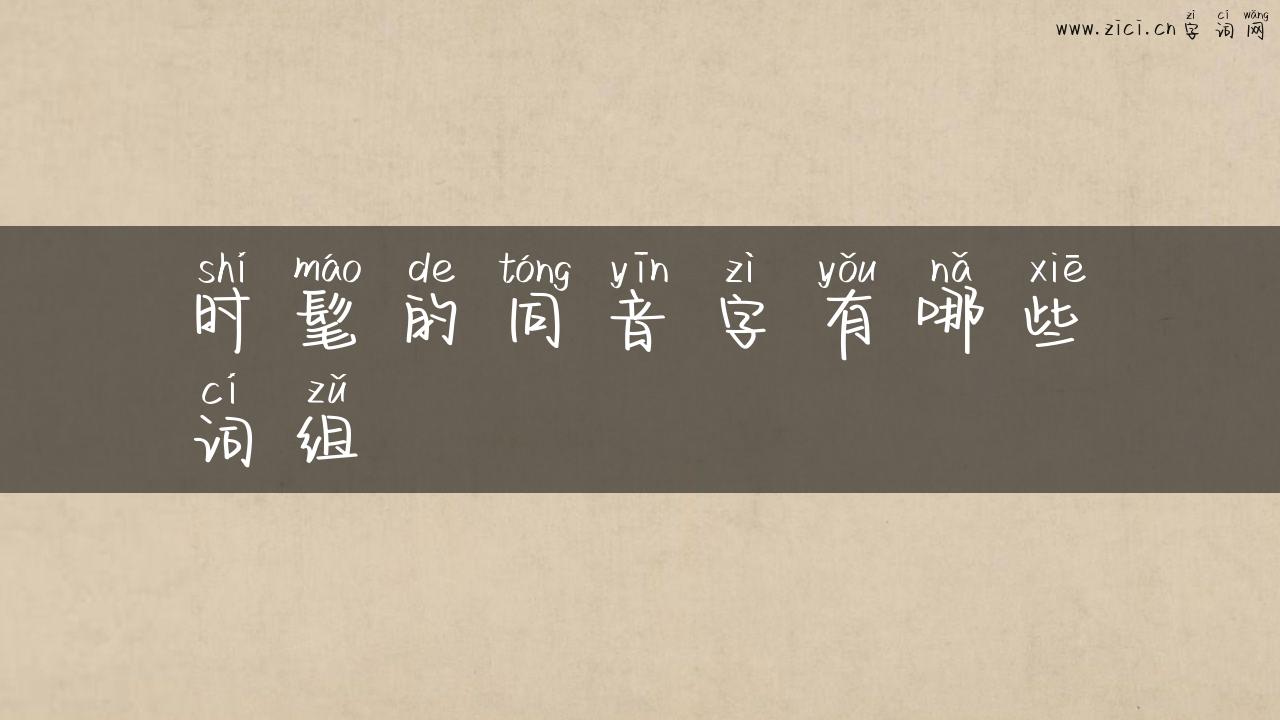 zì cí wǎng
www.zici.cn 字词网
shí máo de tóng yīn zì yǒu nǎ xiē
时髦的同音字有哪些
cí zǔ
词组